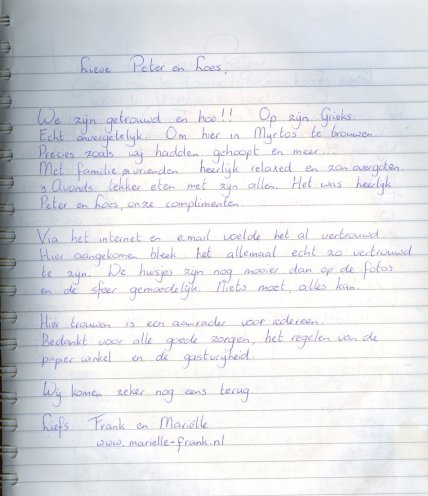 Lieve Peter en Loes,
We zijn getrouwd en hoe!! Op zijn Grieks.
Echt onvergetelijk. Om hier in Myrtos te trouwen.
Precies zoals wij hadden gehoopt en meer...
Met familie, vrienden heerlijk relaxed en zonovergoten.
's Avonds lekker eten met zijn allen. Het was heerlijk
Peter en Loes, onze complimenten.
Via het internet en e.mail voelde het al vertrouwd.
Hier aangekomen bleek het allemaal echt zo vertrouwd
te zijn. De huisjes zijn nog mooier dan op de foto's
en de sfeer gemoedelijk. Niets moet, alles kan.
Hier trouwen is een aanrader voor iedereen.
Bedankt voor alle goede zorgen, het regelen van de
papier winkel en de gastvrijheid.
Wij komen zeker nog eens terug.
Liefs Frank en Mariëlle
www.marielle-frank.nl